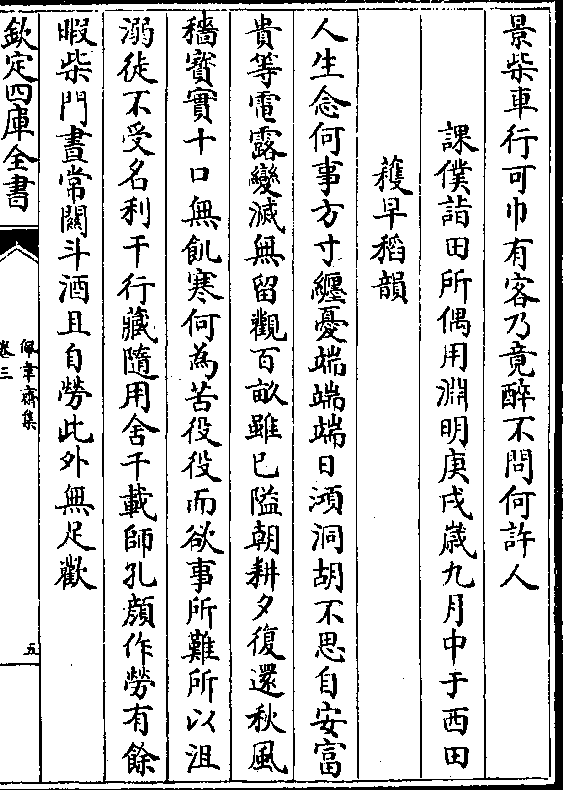 景柴車行可巾有客乃竟醉不問何許人
課僕詣田所偶用淵明庚戌歲九月中于西田
穫早稻韻
人生念何事方寸纏憂端端端日澒洞胡不思自安富
貴等電露變滅無留觀百畝雖已隘朝耕夕復還秋風
穡寳實十口無飢寒何為苦役役而欲事所難所以沮
溺徒不受名利干行藏隨用舍千載師孔顔作勞有餘
暇柴門晝常關斗酒且自勞此外無足歡
欽定四庫全書
佩韋齋集
卷三
五